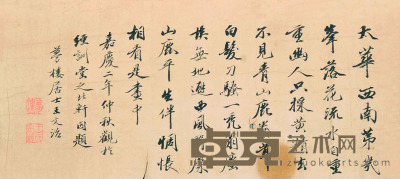 太華西南第幾
峯落花流水自重
重幽人只採黃精去
不見青山鹿養茸
白髮刁騷一禿翁塵
埃無地避西風
山鹿平生伴惆悵
相看是畫中
嘉慶二年仲秋觀於
經訓堂之軒因題
夢樓居士王文治